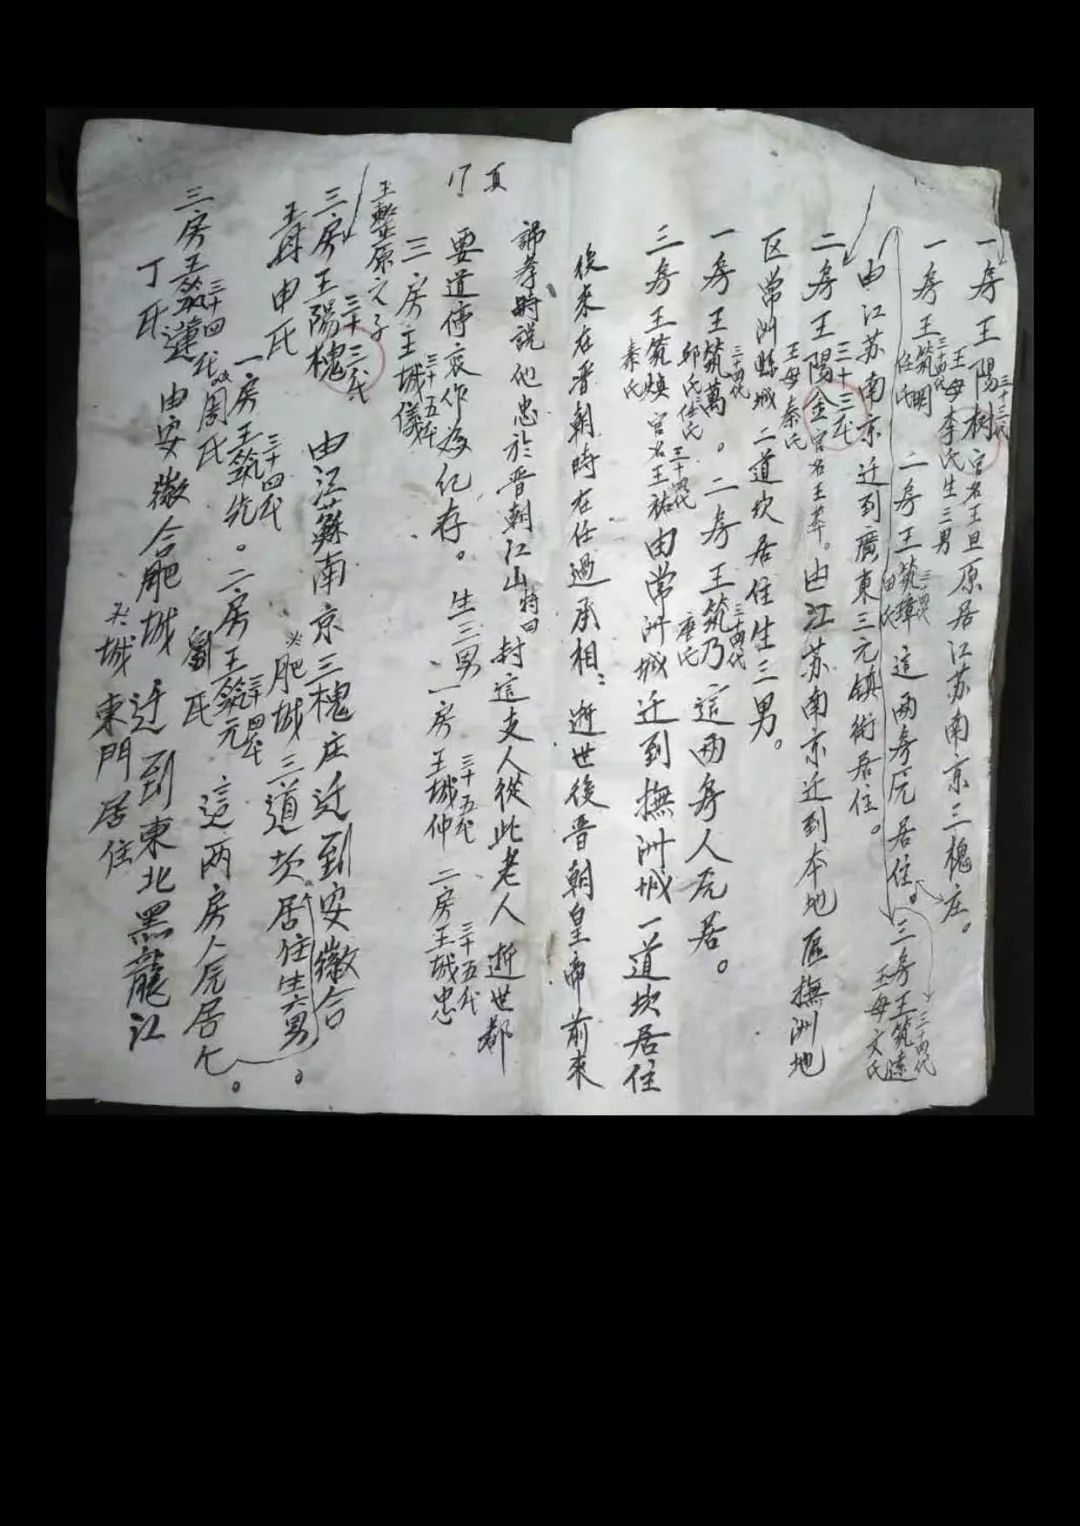 一房王陽树官名王旦原居江苏南京三槐庄。
三十三代
王母李氏生三男
一房王筑明 二房王筑璋 這两房原居住。三房王筑遠
三十四代 任氏 三十四代 田氏 三十四代 王母文氏
由江苏南京迁到廣東三元镇街居住。
二房王陽金官名王莽。由江苏南京迁到本地區撫洲地
三十三代 王母秦氏
区常洲縣城二道坎居住生三男。
一房王筑萬。二房王筑乃這两房人原居。
三十四代 邱氏任氏 三十四代 唐氏
三房王筑焕官名王祐由常洲城迁到撫洲城一道坎居住
秦氏 三十四代
後來在晋朝時在任過承相：逝世後晋朝皇帝前來
谛孝時説他忠於晋朝江山特曰封這支人從此老人逝世都
17頁
要道停哀作為仁存。生三男一房王城仲 二房王城忠
三十五代 三十五代
三房王城儀
三十五代
王整原之子
三房王陽槐 由江蘇南京三槐庄迁到安徽合
三十三代
王母申氏 肥城三道坎居住生三男。
一房王筑先。二房王筑元 這两房人原居
三十四代 周氏 三十四代 劉氏
三房王筑蓮 由安徽合肥城迁到東北黑龍江
三十四代
丁氏 城東門居住